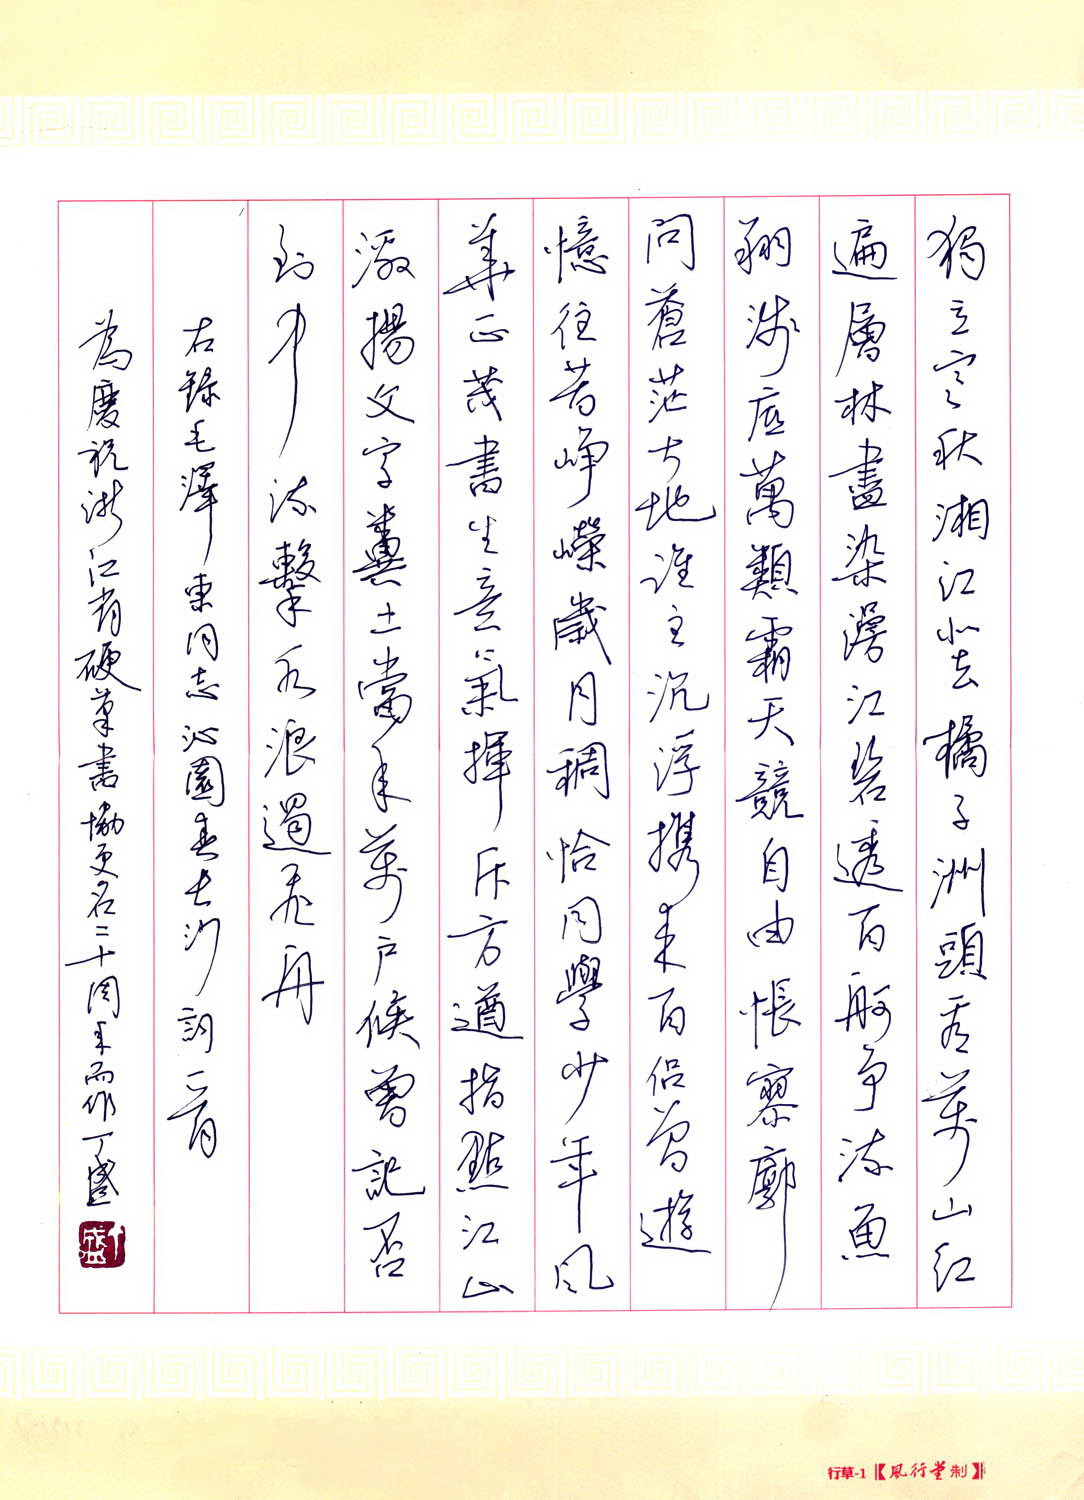 獨立寒秋湘江北去橘子洲頭看萬山紅
遍層林盡染漫江碧透百舸争流魚
翔淺底萬類霜天競自由悵寥廓
問蒼茫大地誰主沉浮携来百侣曾遊
憶往昔崢嶸歲月稠恰同學少年風
華正茂書生意氣揮斥方遒指點江山
激揚文字糞土當年萬户候曾記否
到中流擊水浪遏飛舟
右録毛澤東同志沁園春長沙詞一首
為慶祝浙江省硬筆書協更名二十周年而作丁盛
丁盛
行草-1【風行堂制】